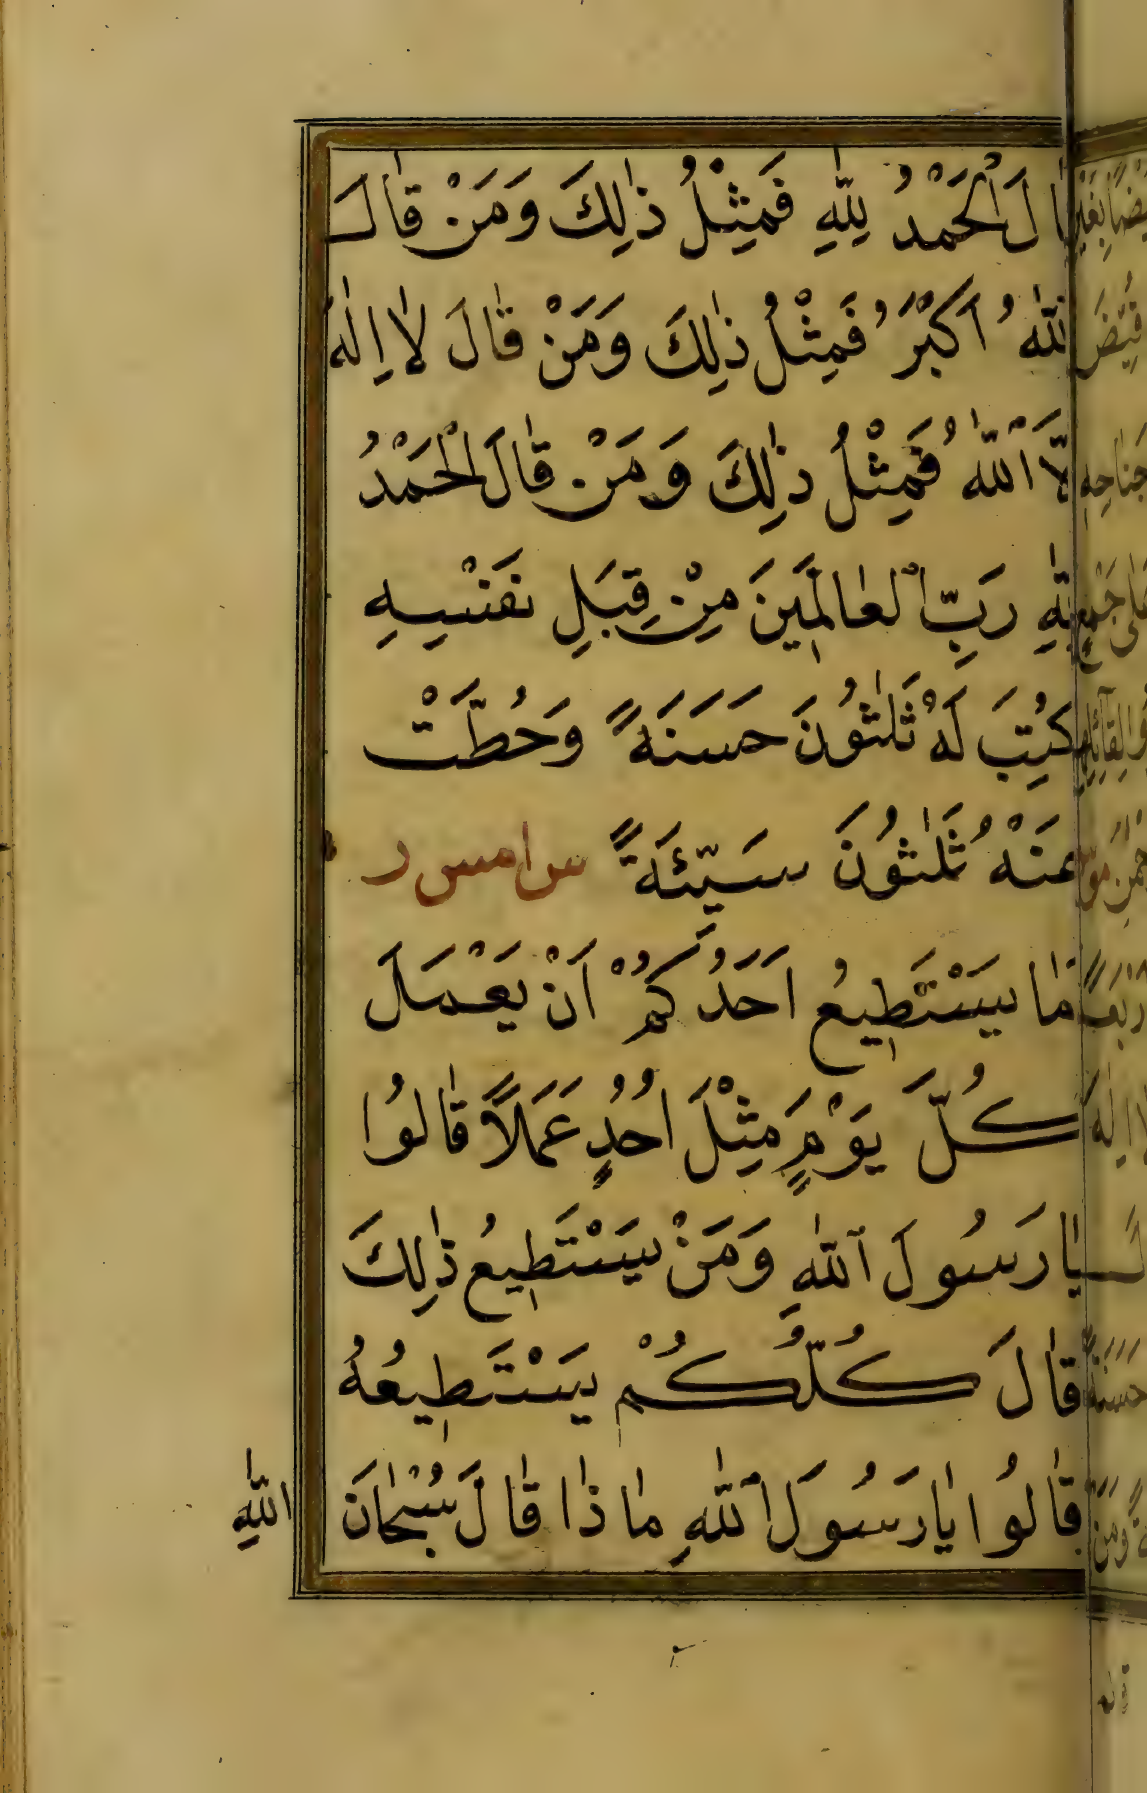 قَالَ الْحَمْدُ لِلّٰهِ فَمِثْلُ ذٰلِكَ وَمَنْ قَالَ
اَللّٰهُ اَكْبَرُ فَمِثْلُ ذٰلِكَ وَمَنْ قَالَ لَا اِلٰهَ
اِلَّا اللّٰهُ فَمِثْلُ ذٰلِكَ وَمَنْ قَالَ الْحَمْدُ
لِلّٰهِ رَبِّ الْعَالَمِينَ مِنْ قِبَلِ نَفْسِهِ
كُتِبَ لَهُ ثَلٰثُونَ حَسَنَةً وَحُطَّتْ
عَنْهُ ثَلٰثُونَ سَيِّئَةً س ا مس ر
مَا يَسْتَطِيعُ اَحَدُكُمْ اَنْ يَعْمَلَ
كُلَّ يَوْمٍ مِثْلَ اُحُدٍ عَمَلًا قَالُوا
يَا رَسُولَ اللّٰهِ وَمَنْ يَسْتَطِيعُ ذٰلِكَ
قَالَ كُلُّكُمْ يَسْتَطِيعُهُ
قَالُوا يَا رَسُولَ اللّٰهِ مَا ذَا قَالَ سُبْحَانَ
اللّٰهِ